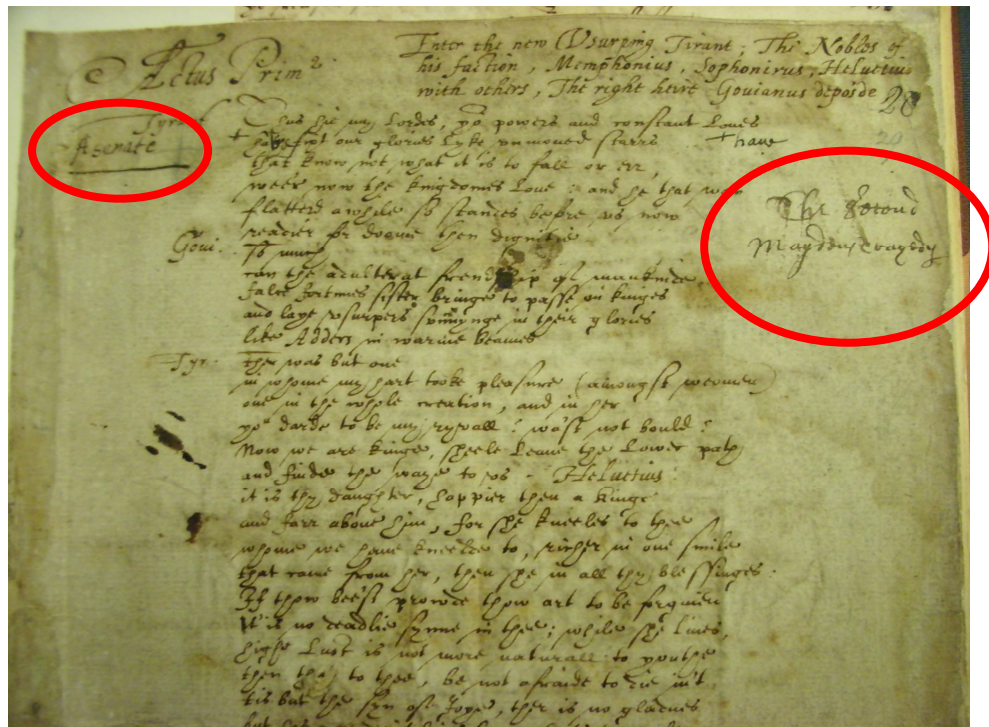 Actus Prim⁹.
Enter the new Vsurping Tirant; The Nobles of
his faction, Memphonius, Sophonirus, Heluetius
with others, The right heire Gouianus deposde
20
Tyrant
Thus hie my Lordes, yoʳ powers and constant Loues
A senate
+ haue fixt our glories Lyke vnmoued starrs
+haue
29
that know not what it is to fall or err,
weer now the kingdomes Loue: and he that was
flatterd awhile so standes before vs now
The Second
readier for doome then dignitie
Maydens Tragedy
Goui.
So much
can the adulterat frendship of mankinde
false fortunes sister bringe to passe on kinges
and laye vsurpers sunnynge in their glories
like Adders in warme beames
Tyr.
Ther was but one
in whome my hart tooke pleasure (amongst weomen)
one in the whole creation, and in her
yoᵘ darde to be my ryvall! was't not bould?
Now we are kinge, sheele Leaue the Lower path
and finde the waye to vs - Helvetius
it is thy daughter, happier then a kinge
and farr aboue him, for she kneeles to thee
whome we haue kneeld to, richer in one smile
that came from her, then she in all thy blessinges.
If thow beest prowde thow art to be forgiuen
It is no deadlie synne in thee; while she Liues,
highe Lust is not more naturall to youthe
then that to thee, be not afraide to die in't
tis but the syn of Joye, ther is no gladnes